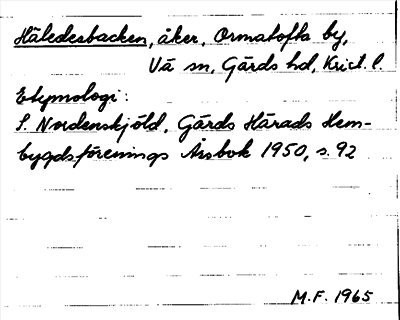 Häledesbacken, åker, Ormatofta by,
Vä sn, Gärds hd, Krist. l.
Etymologi:
S. Nordenskjöld, Gärds Härads Hem-
bygdsförenings Årsbok 1950, s. 92
M.F. 1965